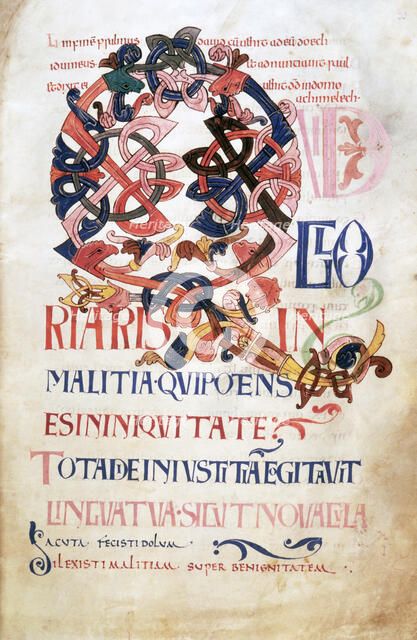 In finē psalmus dauid cū uenit ad eū doech
idumeus saul
& dixit ei uenit dd in domo
achimelech
QVID
GLO
RIARIS IN
MALITIA·QVIPOTENS
ESININIQVITATE:
TOTADIEINIVSTITIĀCOGITAVIT
LINGVATVA·SICVTNOVACVLA
ACUTA FECISTI DOLUM·
DILEXISTI MALITIAM SUPER BENIGNITATEM